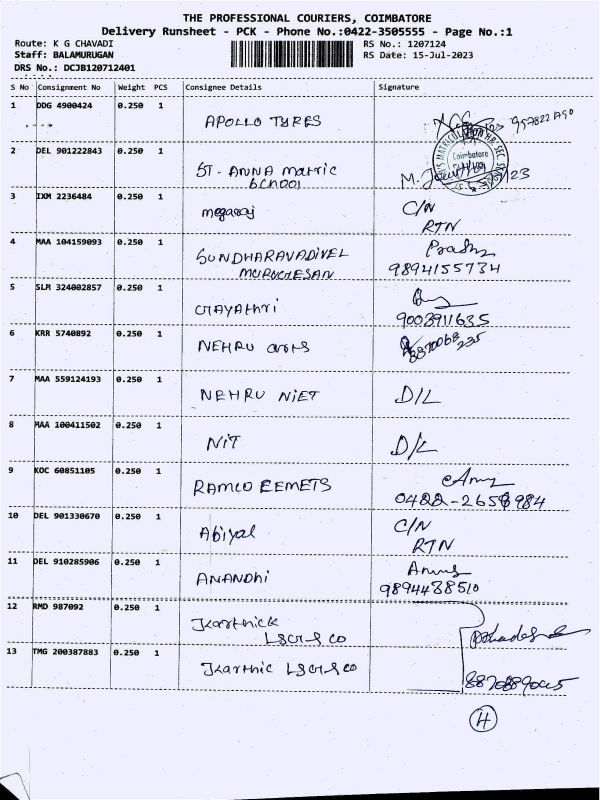 THE PROFESSIONAL COURIERS, COIMBATORE
Delivery Runsheet - PCK - Phone No.:0422-3505555 - Page No.:1
Route: K G CHAVADI RS No.: 1207124
Staff: BALAMURUGAN RS Date: 15-Jul-2023
DRS No.: DCJB120712401
S No Consignment No Weight PCS Consignee Details Signature
1 DDG 4900424 0.250 1 APOLLO TYRES
2 DEL 901222843 0.250 1 ST. ANNA matric
school
Coimbatore
3 IXM 2236484 0.250 1 megaraj C/N
RTN
4 MAA 104159093 0.250 1 SUNDHARAVADIVEL
MURUGESAN 9894155734
5 SLM 324002857 0.250 1 GAYAthri
9003911635
6 KRR 5740892 0.250 1 NEHRU arts
7 MAA 559124193 0.250 1 NEHRU NiET D/L
8 MAA 100411502 0.250 1 NiT D/L
9 KOC 60851105 0.250 1 RAMCO EEMETS
10 DEL 901330670 0.250 1 Abiyal C/N
RTN
11 DEL 910285906 0.250 1 ANANDhi
9894438510
12 RMD 987092 0.250 1 Karthick
LSG&S CO
13 TMG 200387883 0.250 1 Karthic LSG&S CO